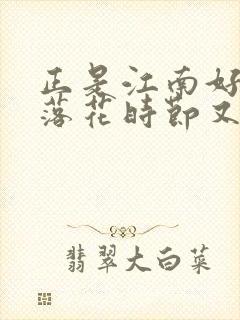 正是江南好
落花时节又
翡翠大白菜